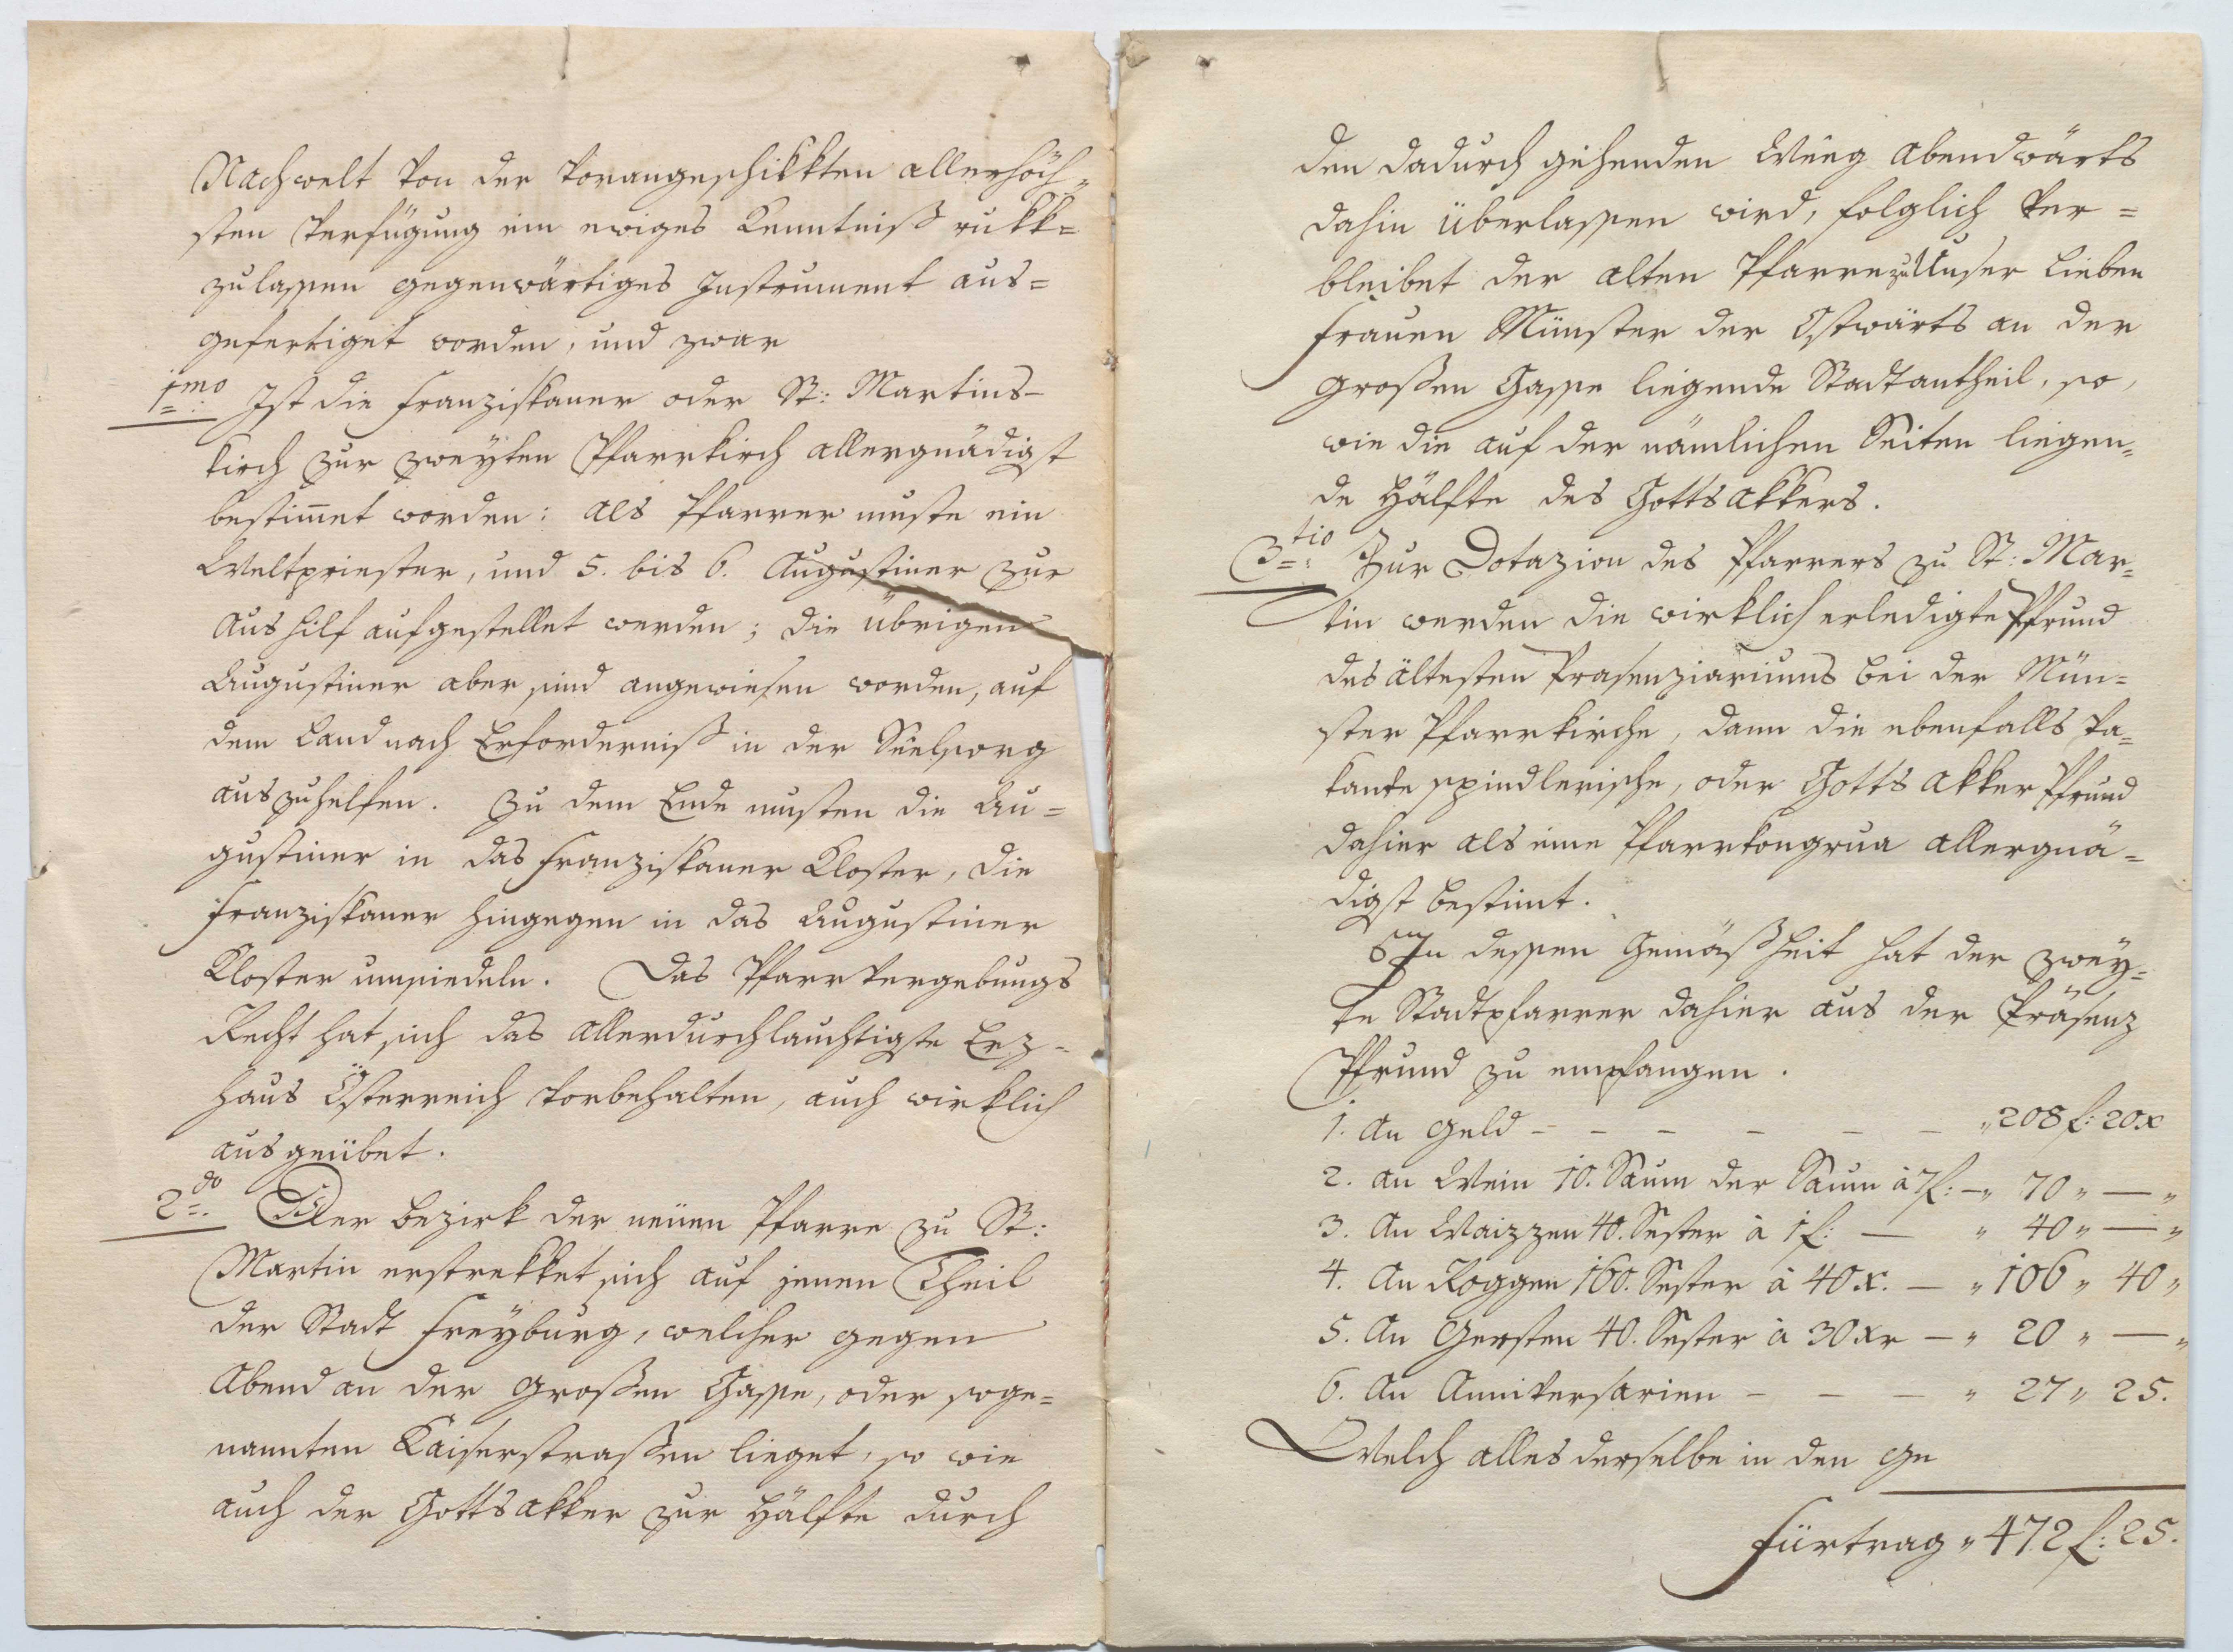 Nachwelt von der vorangeschikkten allerhöch=
sten Verfügung ein ewiges Kenntniß rukk=
zulassen gegenwärtiges Instrument aus=
gefertiget worden, und zwar
1mo Ist die Franziskaner oder St: Martins-
kirch zur zweyten Pfarrkirch allergnädigst
bestim̄et worden: als Pfarrer muste ein
Weltpriester, und 5. bis 6. Augustiner zur
Aushilf aufgestellet werden; die übrigen
Augustiner aber sind angewiesen worden, auf
dem Land nach Erforderniß in der Seelsorg
auszuhelfen. Zu dem Ende musten die Au=
gustiner in das Franziskaner Kloster, die
Franziskaner hingegen in das Augustiner
Kloster umsiedeln. Das Pfarrvergebungs
Recht hat sich das allerdurchlauchtigste Erz=
haus Österreich vorbehalten, auch wirklich
ausgeübet.
2do Der Bezirk der neüen Pfarre zu St:
Martin erstrekket sich auf jenen Theil
der Stadt Freyburg, welcher gegen
Abend an der großen Gasse, oder soge=
nannten Kaiserstraßen lieget, so wie
auch der Gottsakker zur Hälfte durch
den dadurch gehenden Weeg abendwärts
dahin überlassen wird, folglich ver=
bleibet der alten Pfarre zu Unser lieben
Frauen Münster der Ostwärts an der
großen Gasse liegende Stadtantheil, so,
wie die auf der nämlichen Seiten liegen=
de Hälfte des Gottsakkers.
3tio Zur Dotazion des Pfarrers zu St: Mar=
tin werden die wirklich erledigte Pfrund
des ältesten Präsenziariums bei der Mün=
ster Pfarrkirche, dann die ebenfalls va=
kante spindlerische, oder Gotts Akker Pfrund
dahier als eine Pfarrkongrua allergnä=
digst bestimt.
In dessen Gemäßheit hat der zwey=
te Stadtpfarrer dahier aus der Präsenz
Pfrund zu empfangen.
1. An Geld - - - - - - „ 208 f: 20 x
2. An Wein 10. Saum der Saum à 7 f: - „ 70 „ — „
3. An Waizzen 40. Sester à 1 f: — „ 40 „ — „
4. An Roggen 160. Sester à 40 x. — „ 106 „ 40 „
5. An Gersten 40. Sester à 30 xr — „ 20 „ — „
6. An Anniversarien - - - „ 27 „ 25.
Welch alles derselbe in den ge
Fürtrag „ 472 f: 25.